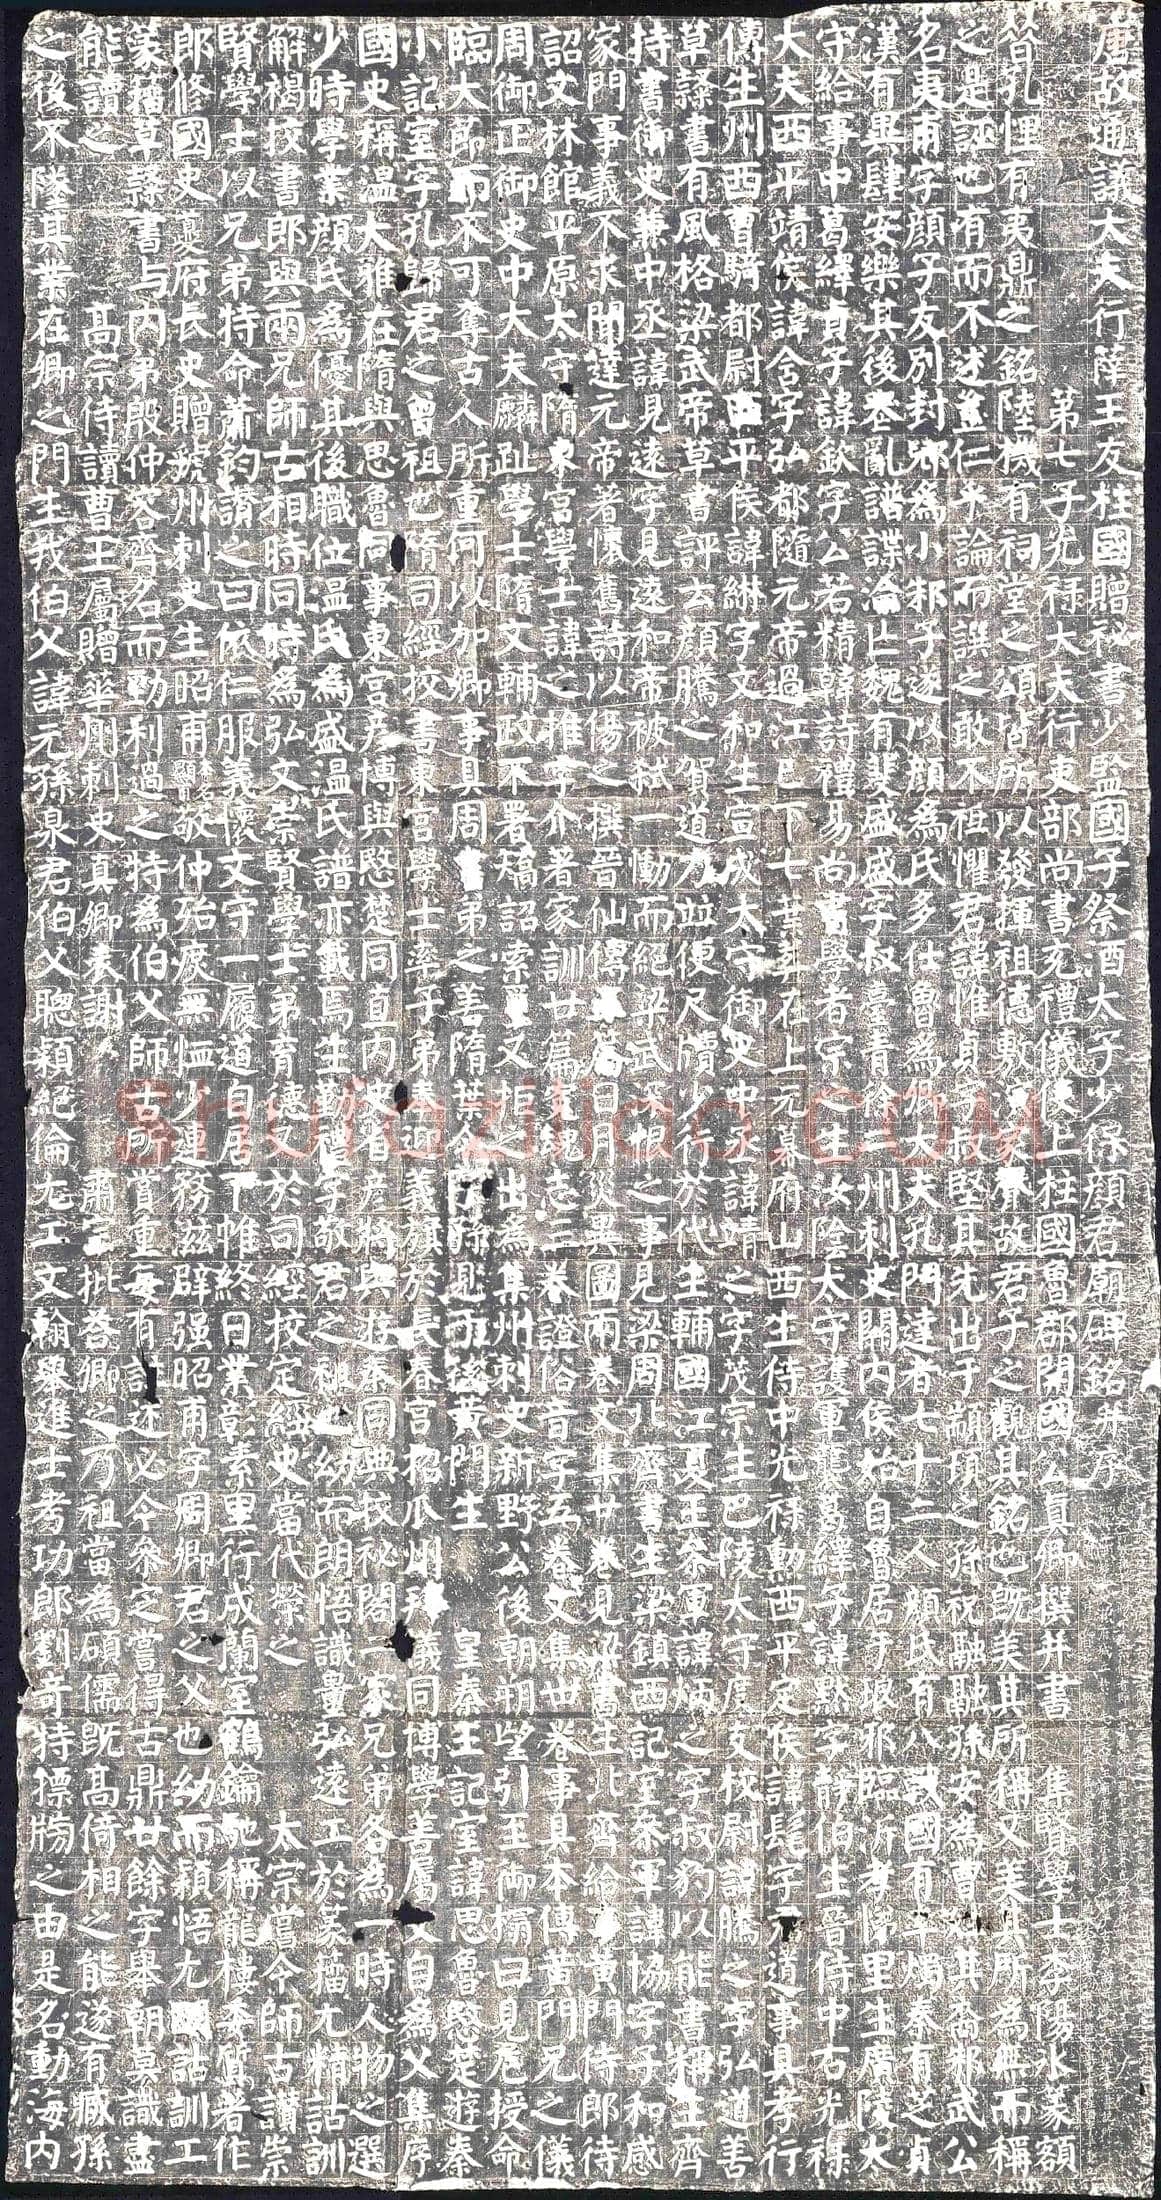 唐故通議大夫行薛王友柱國贈祕書少監國子祭酒太子少保顏君廟碑銘并序
第七子光祿大夫行吏部尚書充禮儀使上柱國魯郡開國公真卿撰并書 集賢學士李陽冰篆額
昔孔悝有夷鼎之銘陸機有祠堂之頌皆所以發揮祖德敷演聲故君子之觀其銘也既美其所稱又美其所為無而稱
之是誣也有而不述豈仁乎論而譔之敢不祗懼君諱惟貞字叔堅其先出于顓頊之孫祝融融孫安為曹姓其裔邾武公
名夷甫字顏子友別封郳為小邾子遂以顏為氏多仕魯為卿大夫孔門達者七十二人顏氏有八戰國有率燭秦有芝貞
漢有異肆安樂其後喪亂譜諜淪亡魏有斐盛盛字叔臺青徐二州刺史關內侯始自魯居于琅邪臨沂孝悌里生廣陵太
守給事中葛繹貞子諱欽字公若精韓詩禮易尚書學者宗之生汝陰太守護軍襲葛繹子諱默字靜伯生晉侍中右光祿
大夫西平靖侯諱含字弘都隨元帝過江已下七葉葬在上元幕府山西生侍中光祿勳西平定侯諱髦字君道事具孝行
傳生州西曹騎都尉西平侯諱綝字文和生宣城太守御史中丞諱靖之字茂宗生巴陵太守度支校尉諱騰之字弘道善
草隸書有風格梁武帝草書評云顏騰之賀道力並便尺牘少行於代生輔國江夏王參軍諱炳之字叔豹以能書稱生齊
持書御史兼中丞諱見遠字見遠和帝被弒一慟而絕梁武深恨之事見梁周北齊書生梁鎮西記室參軍諱協字子和感
家門事義不求聞達元帝著懷舊詩以傷之撰晉仙傳五篇日月災異圖兩卷文集廿卷見梁書生北齊給事黃門侍郎待
詔文林館平原太守隋東宮學士諱之推字介著家訓廿篇冤魂志三卷證俗音字五卷文集卅卷事具本傳黃門兄之儀
周御正御史中大夫麟趾學士隋文輔政不署矯詔索璽又拒之出為集州刺史新野公後朝朔望引至御榻曰見危授命
臨大節而不可奪古人所重何以加卿事具周書弟之善隋葉令 後黃門生 皇秦王記室諱思魯愍楚遊秦
小記室字孔歸君之曾祖也隋司經校書東宮學士率子弟奉迎義旗於長春宮招瓜州拜儀同博學善屬文自為父集序
國史稱溫大雅在隋與思魯同事東宮彥博與愍楚同直內史省彥將與遊秦同典校祕閣二家兄弟各為一時人物之選
少時學業顏氏為優其後職位溫氏為盛溫氏譜亦載焉生勤禮字敬君之祖也幼而朗悟識量弘遠工於篆籀尤精詁訓
解褐校書郎與兩兄師古相時同時為弘文崇賢學士弟育德又於司經校定經史當代榮之 太宗嘗令師古讚崇
賢學士以兄弟特命蕭鈞讚之曰依仁服義懷文守一履道自居下帷終日業彰素里行成蘭室鶴鑰馳稱龍樓委質著作
郎修國史夔府長史贈虢州刺史生昭甫本名顯甫敬仲殆庶無恤少連務滋辟强昭甫字周卿君之父也幼而穎悟尤明詁訓工
篆籀草隸書与內弟殷仲容齊名而勁利過之特為伯父師古所賞重每有註述必令參定嘗得古鼎廿餘字舉朝莫識盡
能讀之 高宗侍讀曹王屬贈華州刺史真卿表謝 肅宗批荅卿之乃祖當為碩儒既高倚相之能遂有臧孫
之後不墜其業在卿之門生我伯父諱元孫泉君伯父聰穎絕倫尤工文翰舉進士考功郎劉奇特摽牓之由是名動海內
shufaziliao.COM